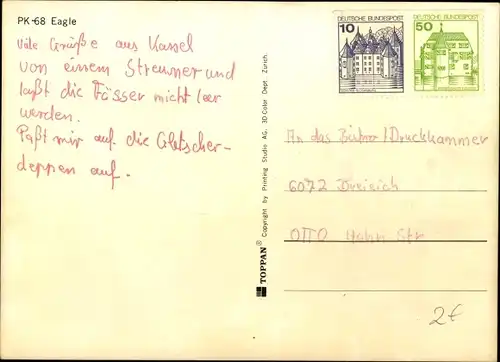 PK-68 Eagle
Viele Grüße aus Kassel
von einem Streuner und
laßt die Fässer nicht leer
werden.
Paßt mir auf die Gletscher-
deppen auf.
TOPPAN® Copyright by Printing Studio AG. 3D Color Dept. Zürich
DEUTSCHE BUNDESPOST
10
DEUTSCHE BUNDESPOST
50
An das Büro/Druckkammer
6072 Dreieich
OTTO Hahn Str
2€